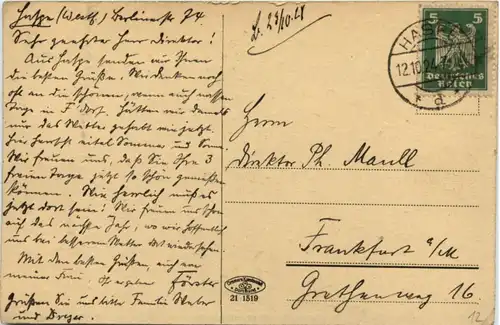 Haspe (Westf.) Berlinerstr. 74.
Sehr geehrter Herr Direktor!
Aus Haspe senden wir Ihnen
die besten Grüße. Wir denken noch
oft an die schönen, wenn auch nassen
Tage in F' dorf. Hätten wir damals
nur das Wetter gehabt wie jetzt.
Hier herrscht eitel Sommer und Sonne.
Wir freuen uns, daß Sie Ihre 3
freien Tage jetzt so schön genießen
können. Wie herrlich muß es
jetzt dort sein! Wir freuen uns schon
auf das nächste Jahr, wo wir hoffentlich
uns bei besserem Wetter dort wiedersehen.
Mit den besten Grüßen, auch von
meiner Frau, Ihr ergebener Förster
Grüßen Sie uns bitte Familie Weber
und Dreger.
b. 23/10.24
5 5
Deutsches
Reich
HAS
12.10.24
* d *
Herrn
Direktor Ph. Maull
Frankfurt a/M
Grethenweg 16
21 1519
12